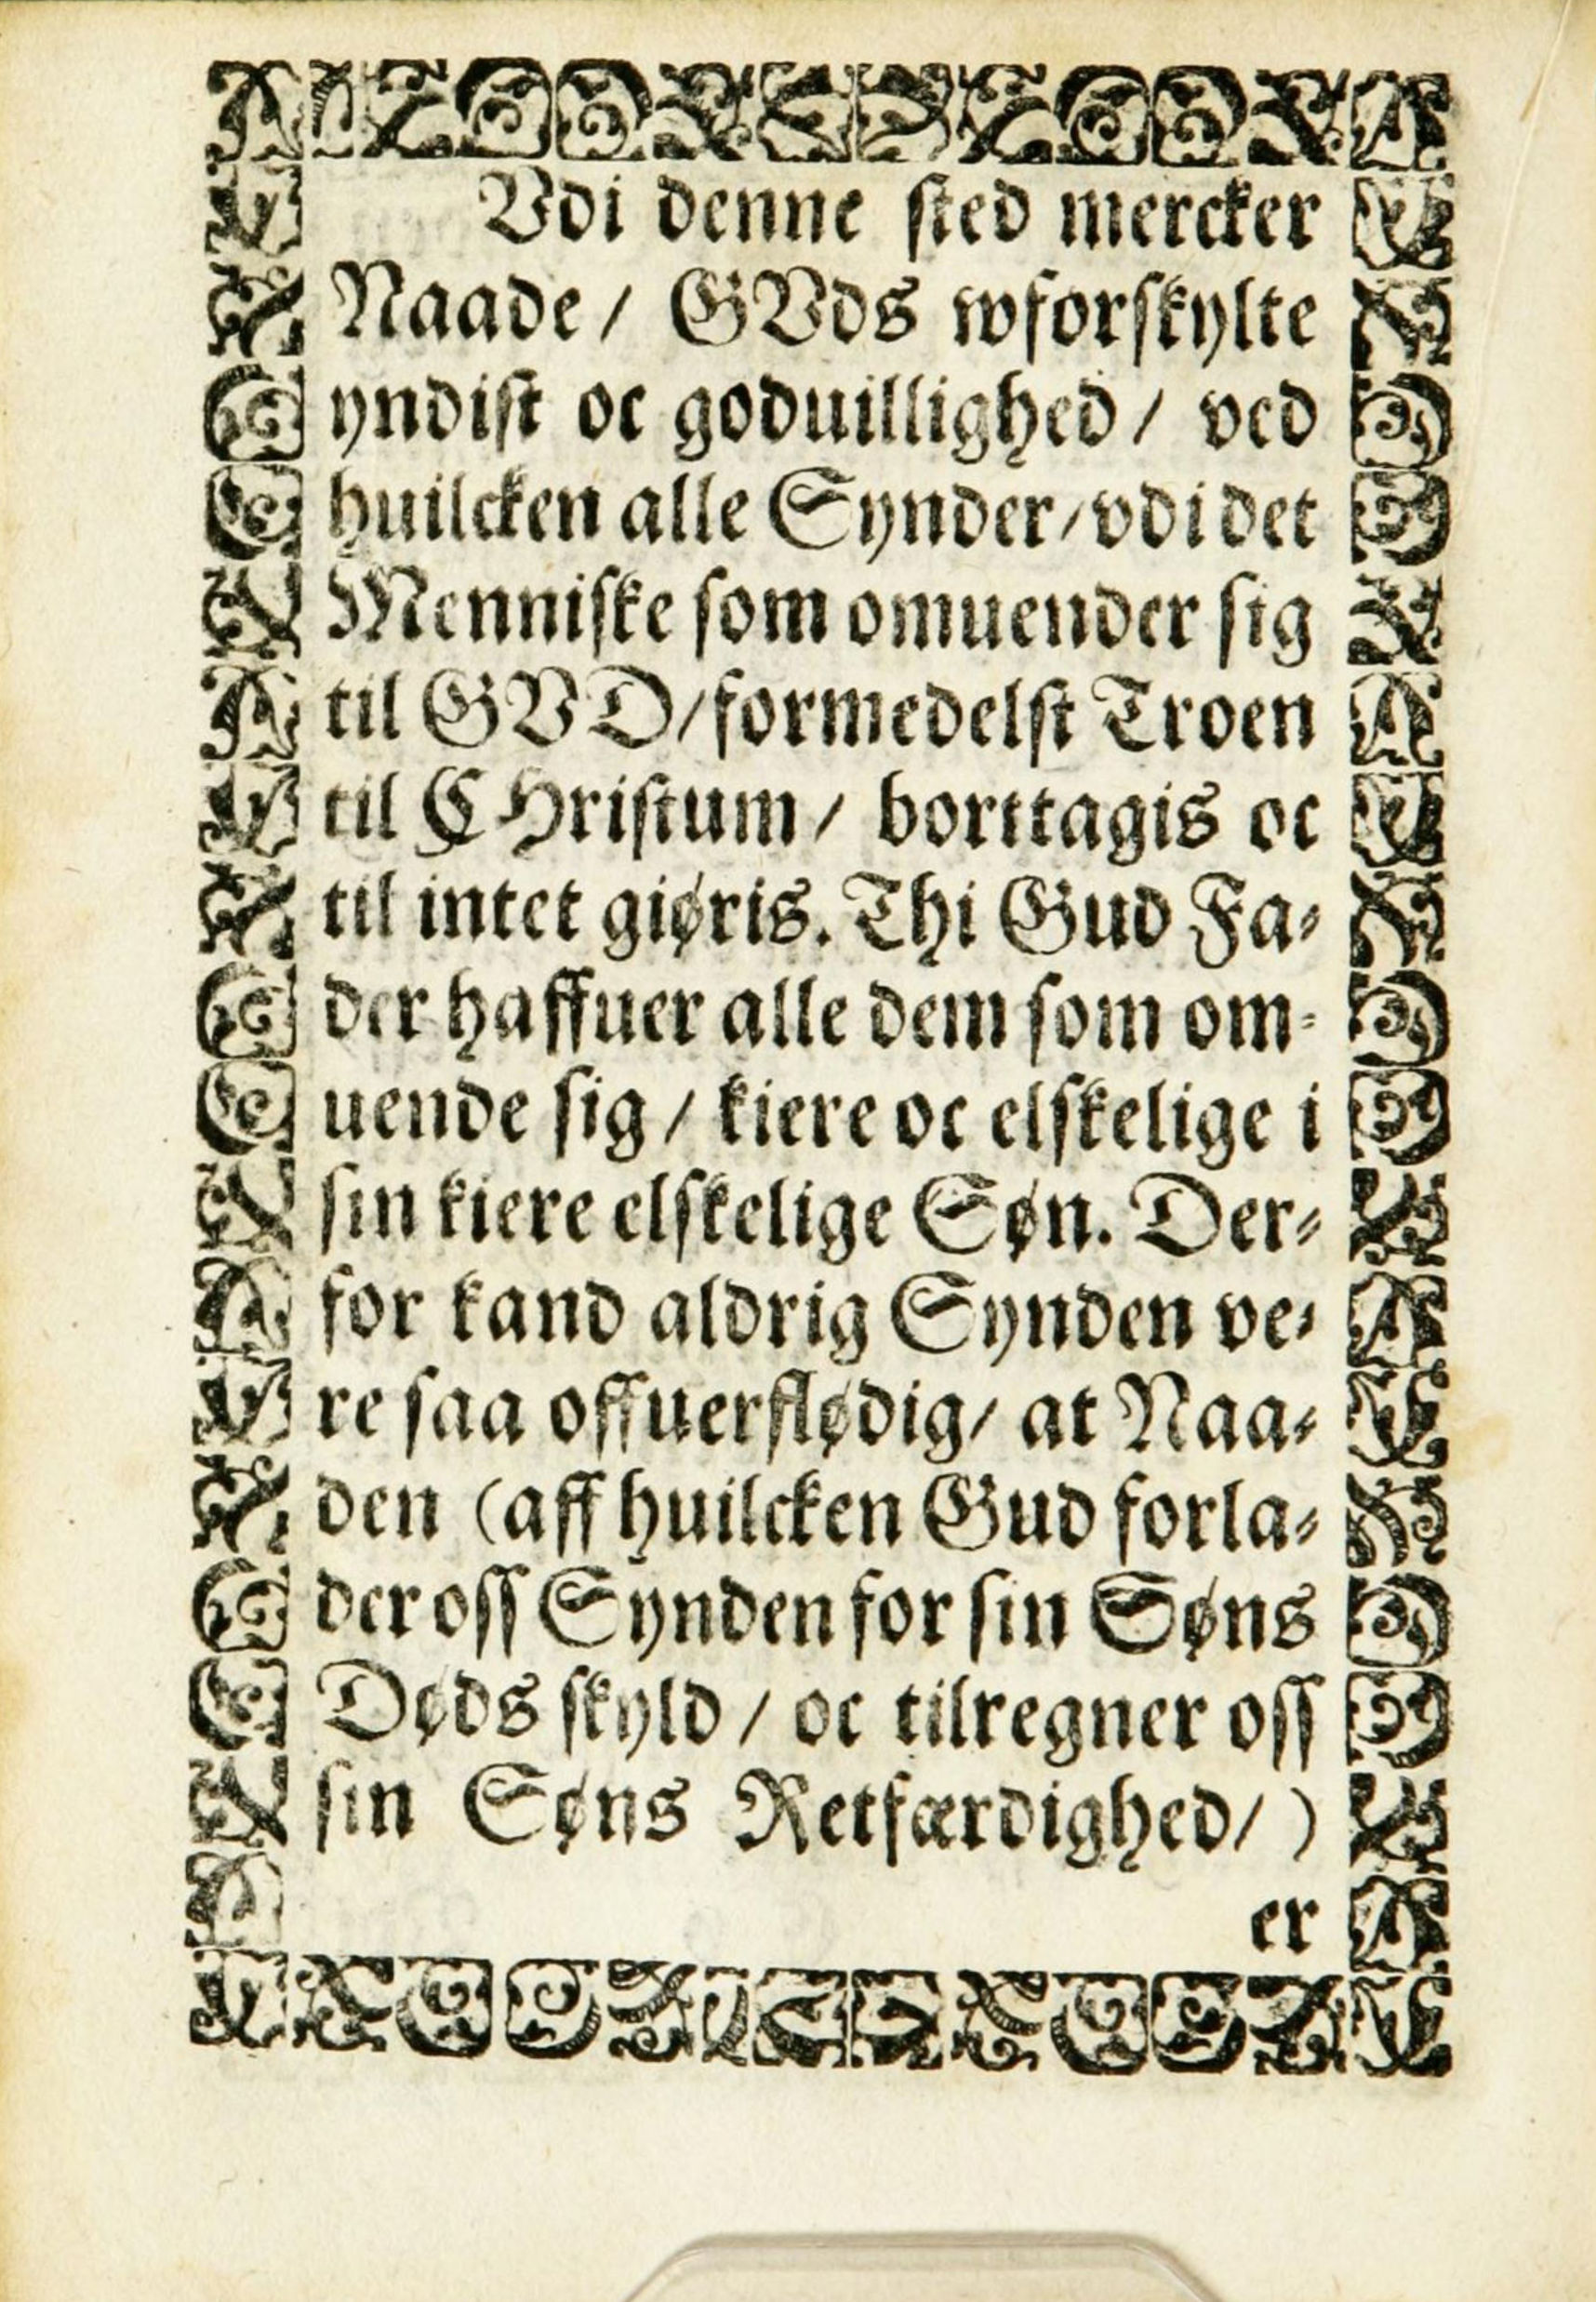 Vdi denne sted mercker
Naade / GVds wforskylte
yndist oc goduillighed / ved
huilcken alle Synder / vdi det
Menniske som omuender sig
til GVD / formedelst Troen
til CHristum / borttagis oc
til intet giøris. Thi Gud Fa⸗
der haffuer alle dem som om⸗
uende sig / kiere oc elskelige i
sin kiere elskelige Søn. Der⸗
for kand aldrig Synden ve⸗
re saa offuerflødig / at Naa⸗
den (aff huilcken Gud forla⸗
der oss Synden for sin Søns
Døds skyld / oc tilregner oss
sin Søns Retfærdighed / )
er